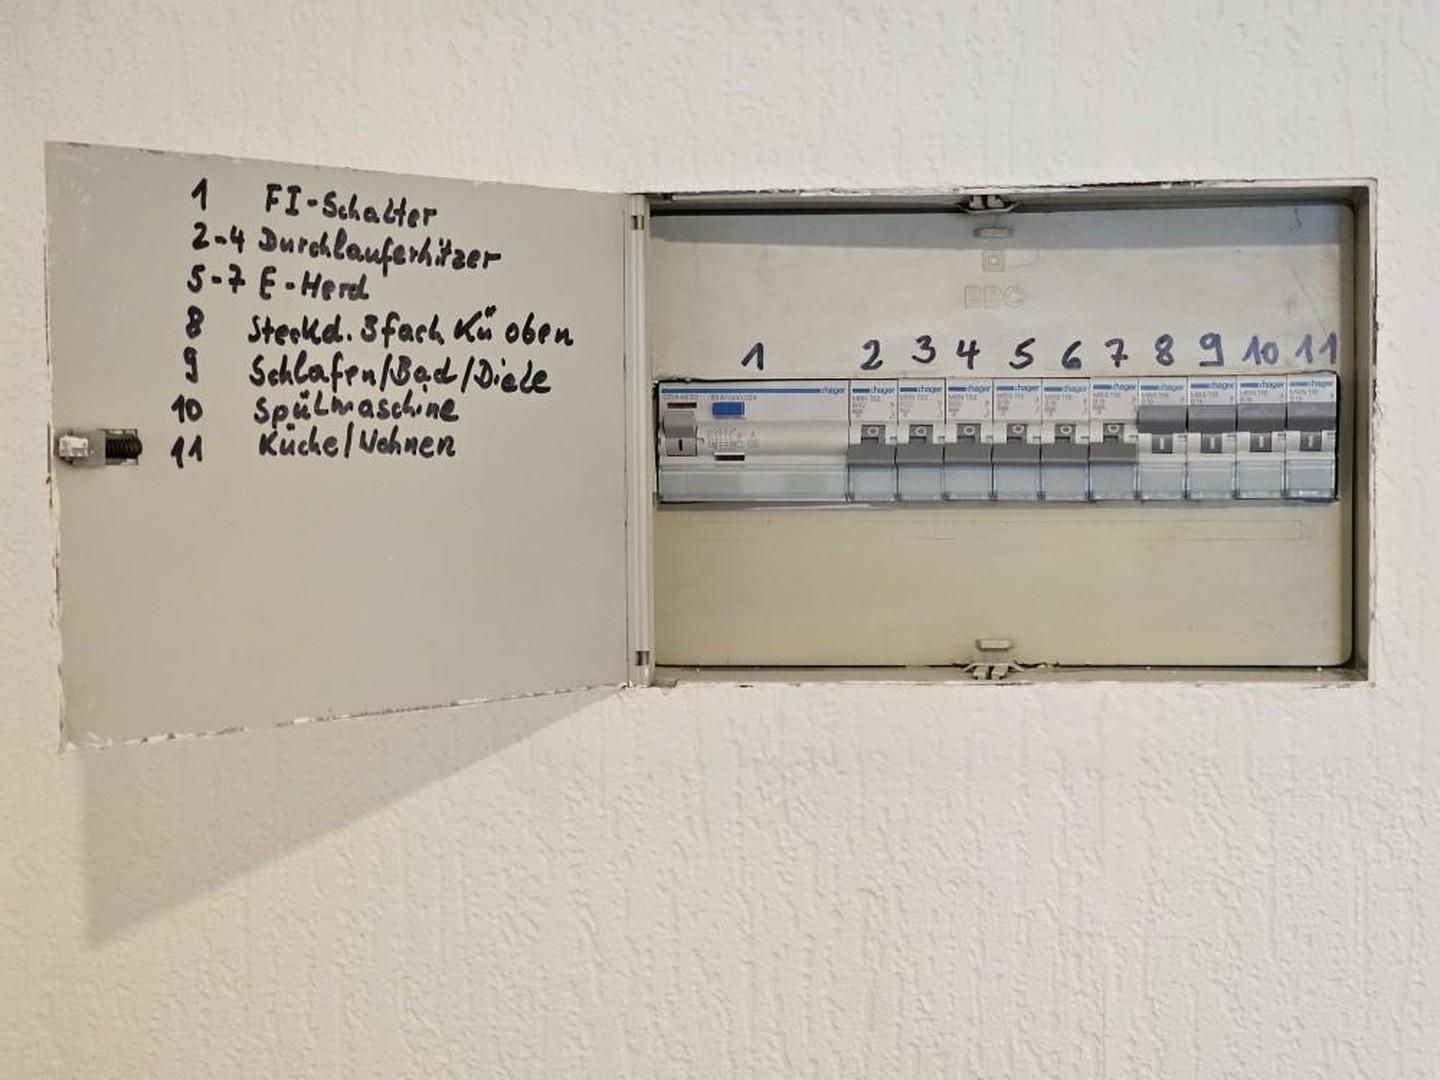 1 FI-Schalter
2-4 Durchlauferhitzer
5-7 E-Herd
8 Steckd. 3fach Kü oben
9 Schlafen/Bad/Diele
10 Spülmaschine
11 Küche/Wohnen
BBC
1 2 3 4 5 6 7 8 9 10 11
:hager :hager :hager :hager :hager :hager :hager :hager :hager :hager :hager